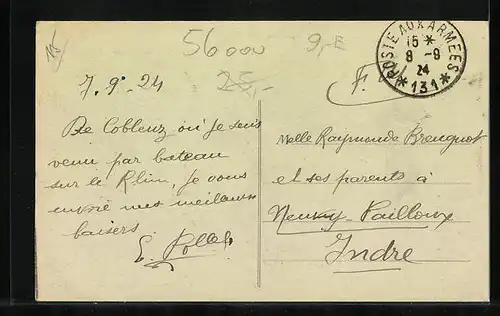 56000
9,-E
25,-
POSTE AUX ARMEES
15 *
8-9
24
* 131 *
F.
7.9.24
De Coblenz où je suis
venu par bateau
sur le Rhin, je vous
envoie mes meilleurs
baisers
E.
Melle Raymonde Breugnot
et ses parents à
Neuvy-Pailloux
Indre